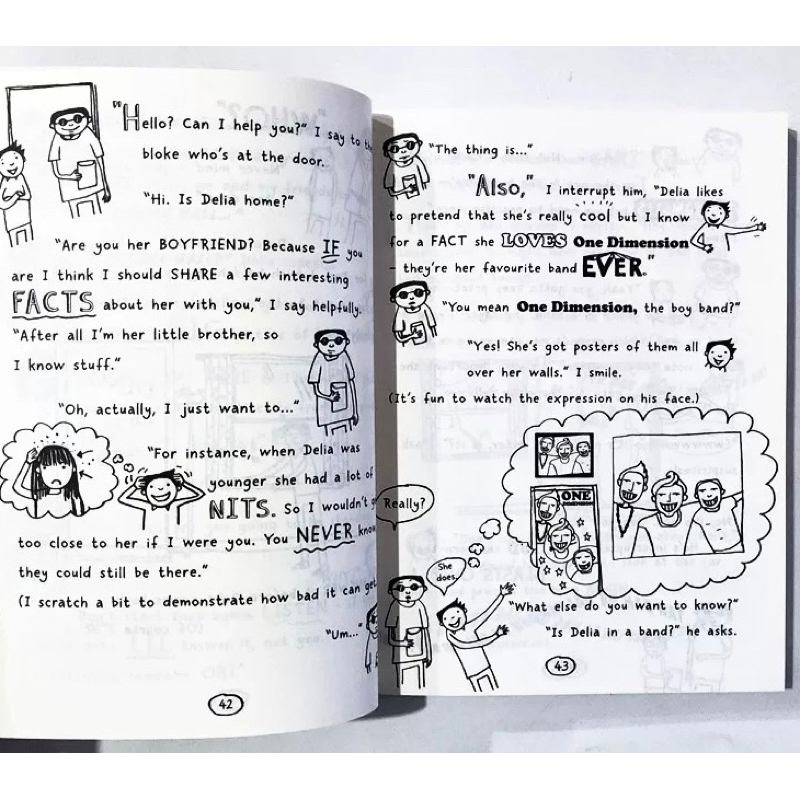 "Hello? Can I help you?" I say to the
bloke who's at the door.
"Hi. Is Delia home?"
"Are you her BOYFRIEND? Because IF you
are I think I should SHARE a few interesting
FACTS about her with you," I say helpfully.
"After all I'm her little brother, so
I know stuff."
"Oh, actually, I just want to..."
"For instance, when Delia was
younger she had a lot of
NITS. So I wouldn't
too close to her if I were you. You NEVER know
they could still be there."
(I scratch a bit to demonstrate how bad it can get
"Um..."
42
"The thing is..."
"Also," I interrupt him, "Delia likes
to pretend that she's really cool but I know
for a FACT she LOVES One Dimension
- they're her favourite band EVER."
"You mean One Dimension, the boy band?"
"Yes! She's got posters of them all
over her walls." I smile.
(It's fun to watch the expression on his face.)
ONE
DIMENSION
Really?
She
does.
"What else do you want to know?"
"Is Delia in a band?" he asks.
43